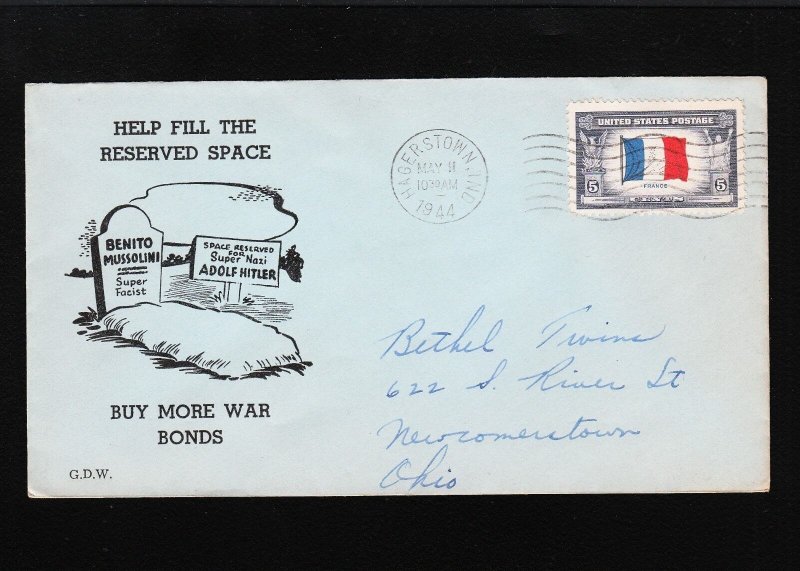 HELP FILL THE
RESERVED SPACE
BENITO
MUSSOLINI
Super
Facist
SPACE RESERVED
FOR
Super Nazi
ADOLF HITLER
BUY MORE WAR
BONDS
G.D.W.
HAGERSTOWN, IND.
MAY 11
1030 AM
1944
UNITED STATES POSTAGE
5 5
FRANCE
CENTS
Bethel Twins
622 S. River St
Newcomerstown
Ohio